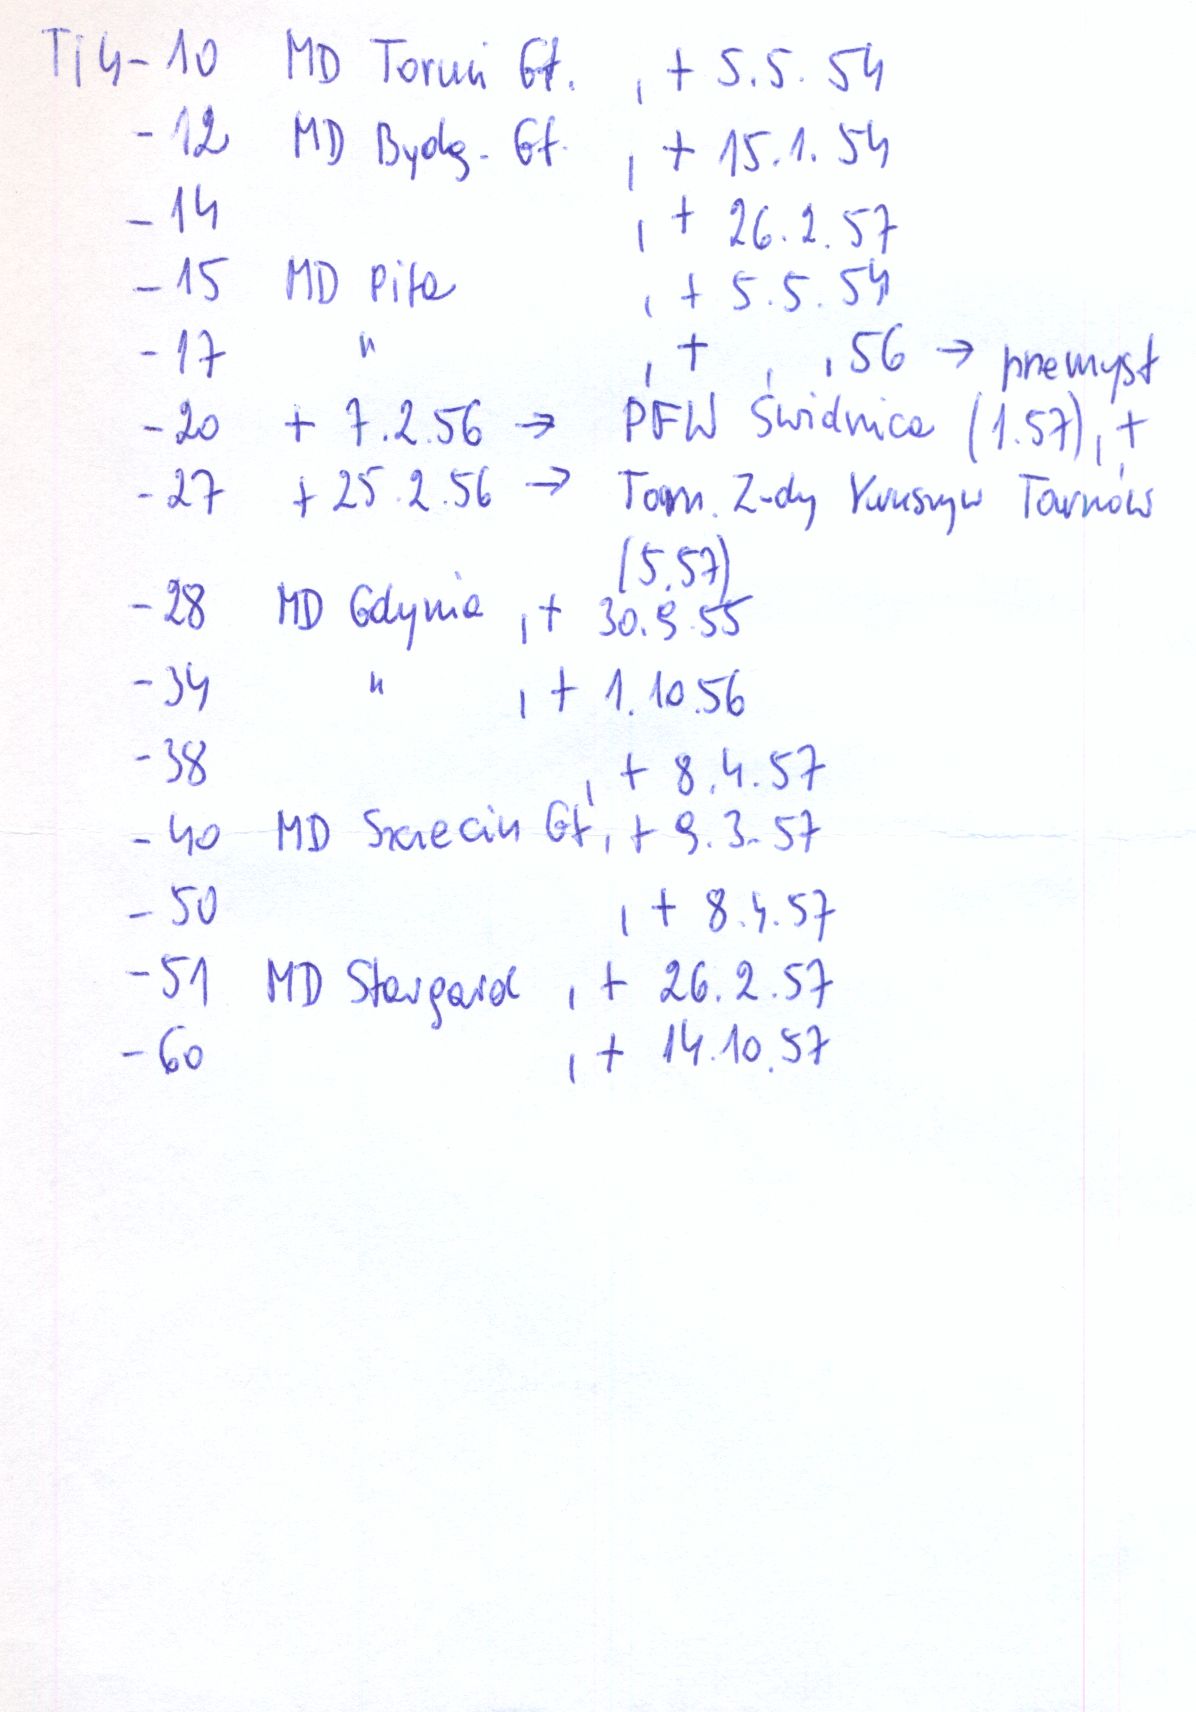 Ti4-10 MD Toruń Gł. , + 5.5.54
-12 MD Bydg. Gł. , + 15.1.54
-14 , + 26.2.57
-15 MD Piła , + 5.5.54
-17 " , + , , 56 → przemysł
-20 + 7.2.56 → PFW Świdnica (1.57), +
-27 + 25.2.56 → Tarn. Z-dy Kruszyw Tarnów
(5.57)
-28 MD Gdynia , + 30.9.55
-34 " , + 1.10.56
-38 , + 8.4.57
-40 MD Szczecin Gł , + 9.3.57
-50 , + 8.4.57
-51 MD Stargard , + 26.2.57
-60 , + 14.10.57